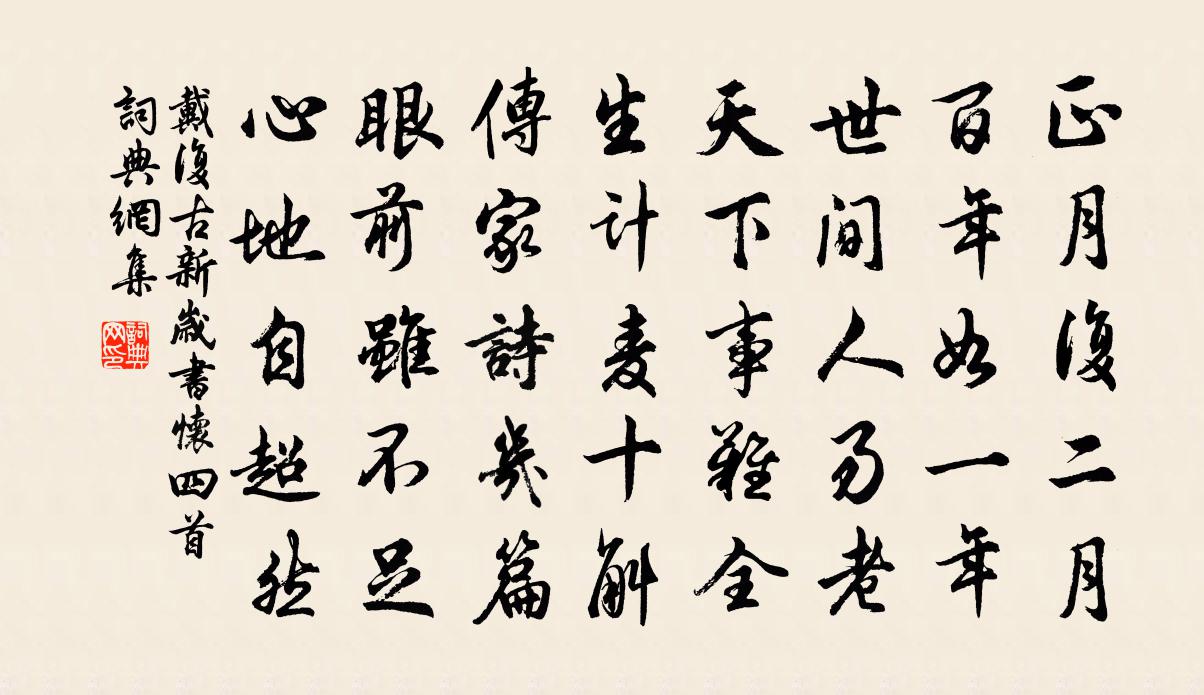 正月復二月
百年如一年
世間人易老
天下事難全
生計麦十斛
傳家詩幾篇
眼前雖不足
心地自超然
戴復古新歲書懷四首
詞典網集
詞典
网印